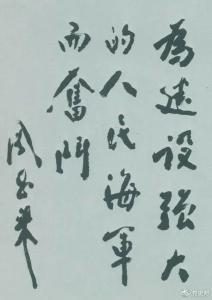 為建设强大
的人民海軍
而奮鬥
周恩来